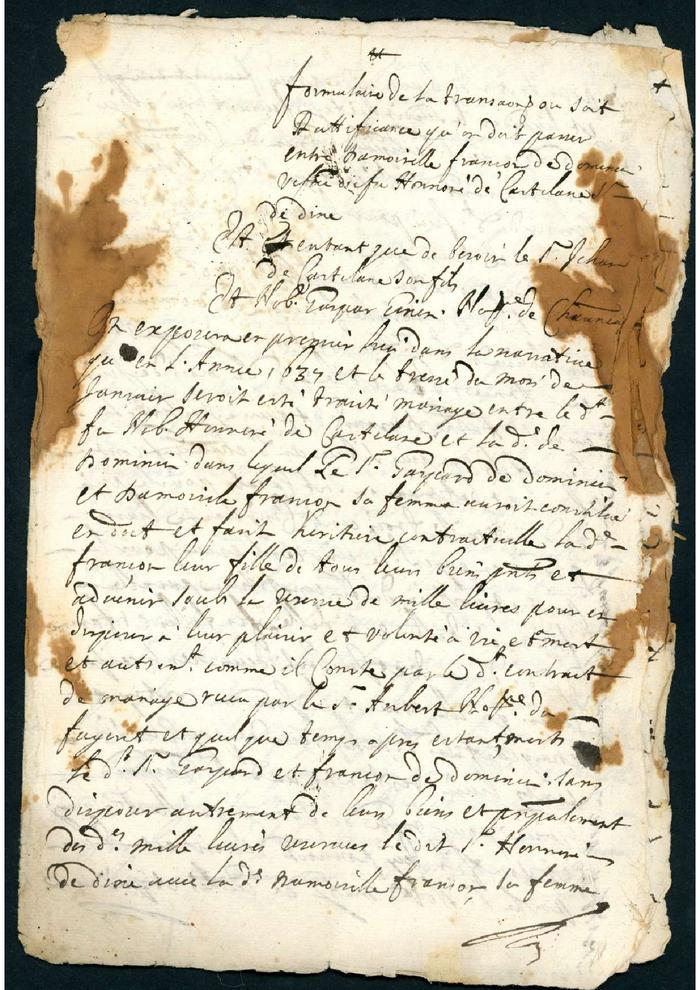 formulaire de la transaon ou soit
Rattifiance qu'on doit passer
entre damoiselle françon de dominici
vefve de fu Honnoré de Castelane Sr
de dine
Et entant que de besoin le Sr. Jehan
de Castelane son fils
Et Nob. Gaspar Notre. de
On exposera en premier lieu dans la narrative
qu'en l'Annee 1637 et le treze du mois de
Janvier seroit esté traité mariage entre le dt
fu Nob Honnoré de Castelane et la de. de
Dominici dans lequel Le Sr. Gaspard de dominici
et damoiselle françon sa femme auroit constitué
en dot et fait heritiere contractuelle la de
françon leur fille de tous leurs biens pnts et
advenir soubs la reserve de mille livres pour en
disposer à leur plaisir et volonté à vie et mort
et autremt. comme il Conste par le dt. contrait
de mariage receu par le Sr Aubert Notre. du
fayent et quelque temps apres estant morts
le dt. Sr. Gaspard et françon de dominici sans
disposer autrement de leurs biens et prnpalement
des des. mille livres reservees le dit Sr. Honnoré
de dine avec la de damoiselle françon sa femme